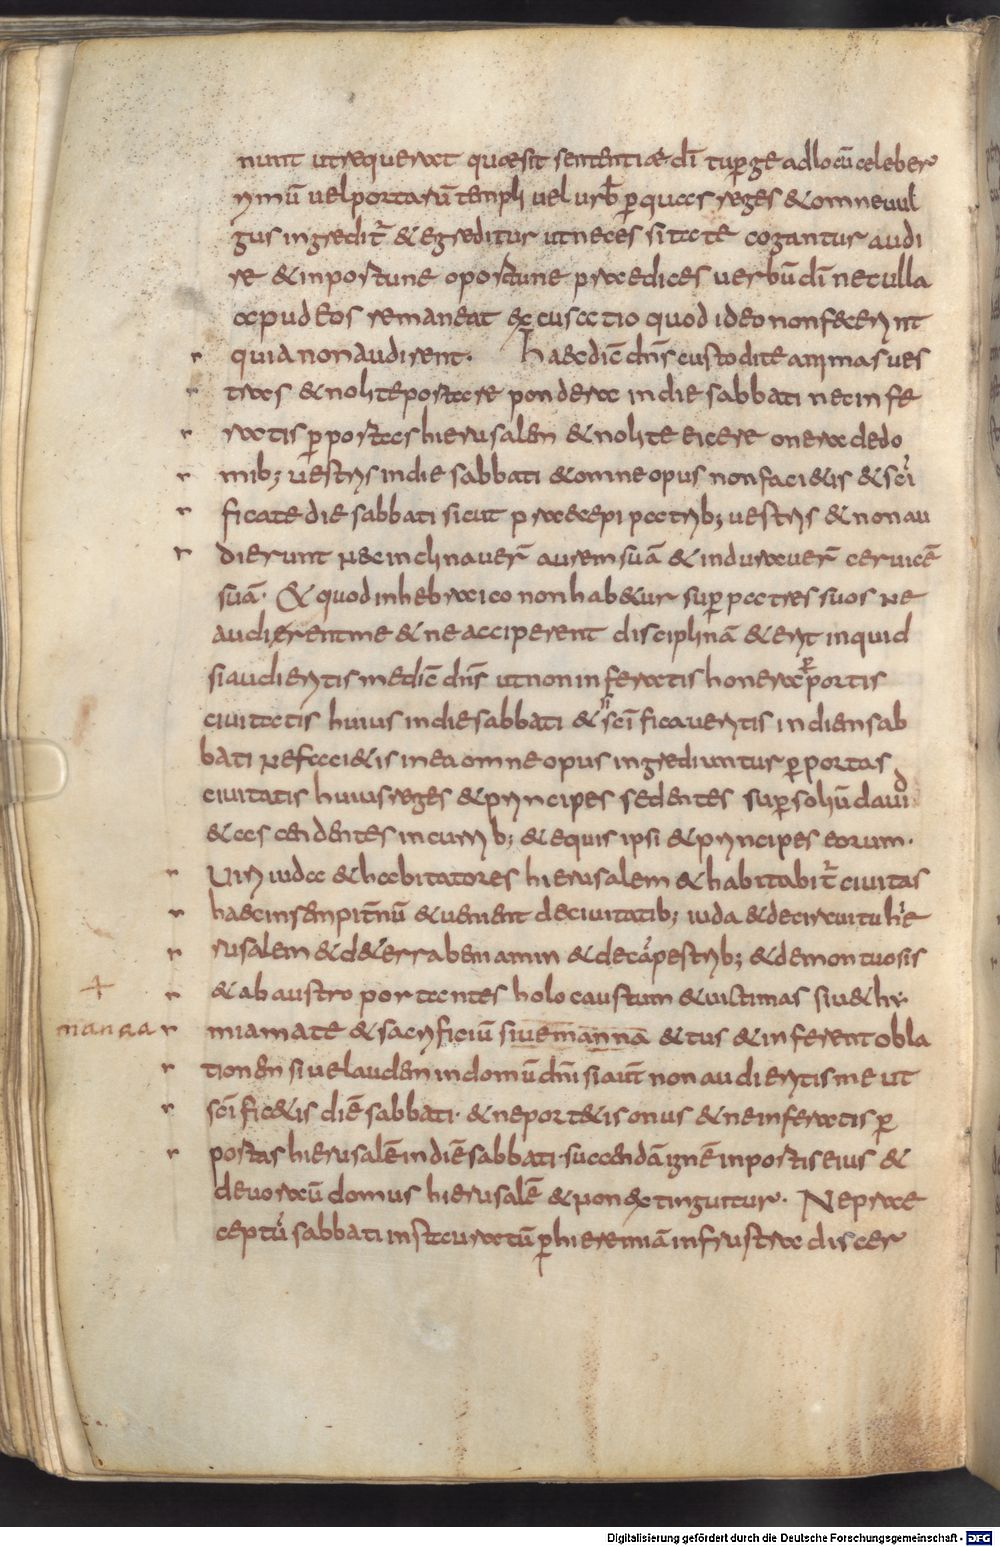 nunt utrequerat quaesit sententiae dī tu ꝑge adlocū celeber
rimū uel portarū templi uel urb̄ ꝑ quas reges & omne uul
gus ingredit̄ & egreditur ut necessitate cogantur audi
re & inportune oportune praedices uerbū dī ne tulla
apud eos remaneat excusatio quod ideo non fecerint
quia non audirent. haec dic̄ dn̄s custodite animas ues
tras & nolite portare pondera in die sabbati nec infe
ratis ꝑ portas hierusalem & nolite eicere onera de do
mib; uestris in die sabbati & omne opus non faci&is & sc̄i
ficate die sabbati sicut praecepi patrib; uestris & non au
dierunt nec inclinauer̄ aurem suā & indurauer̄ ceruicē
suā. & quod in hebraico non hab&ur suꝑ patres suos ne
audierent me & ne acciperent disciplinā & erit inquid
si audieritis me dic̄ dn̄s ut non inferatis honera ꝑ portis
ciuitatis huius in die sabbati & sc̄ificaueritis in diem sab
bati ne faci&is in ea omne opus ingrediuntur ꝑ portas
ciuitatis huius reges & principes sedentes suꝑ soliū dauid
& ascendentes in currib; & equis ipsi & principes eorum.
Uiri iuda & habitatores hierusalem & habitabit̄ ciuitas
haec in sempit̄nū & uenient de ciuitatib; iuda & de circuitu hie
rusalem & de terra beniamin & de cāpestrib; & de montuosis
& ab austro portantes holocaustum & uictimas siue thy
miamate & sacrificiū siue manna & tus & inferent obla
manaa
tionem siue laudem in domū dn̄i si aut̄ non audieritis me ut
sc̄ific&is diē sabbati. & ne port&is onus & ne inferatis ꝑ
portas hierusalē in diē sabbati. succendā ignē in portis eius &
deuorabit domus hierusalē & non extinguitur. Ne prae
ceptū sabbati instauratū ꝑ hieremiā in frustra discer
Digitalisierung gefördert durch die Deutsche Forschungsgemeinschaft - DFG